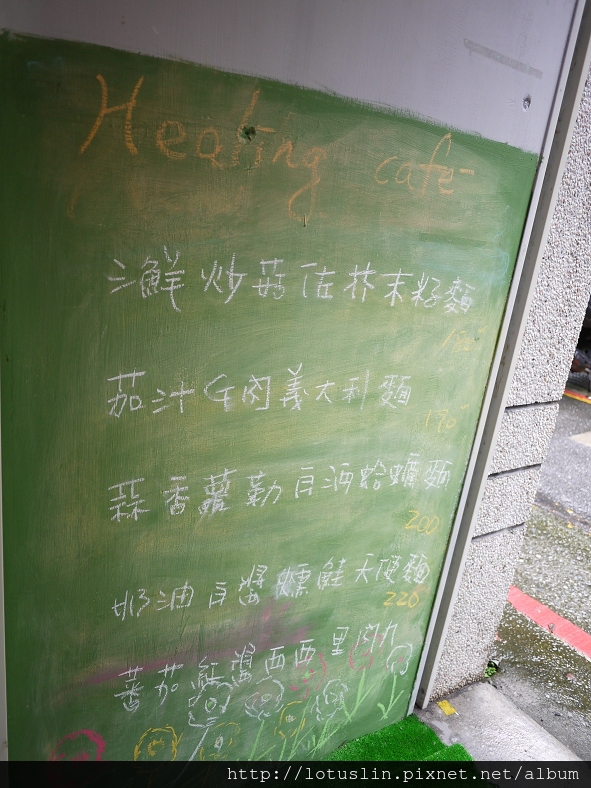 Healing cafe
海鮮炒菇佐芥末籽麵
茄汁牛肉義大利麵
190
蒜香蘿勒白酒蛤蠣麵
200
奶油白醬燻鮭天使麵
220
蕃茄紅醬西西里肉丸
http://lotuslin.pixnet.net/album